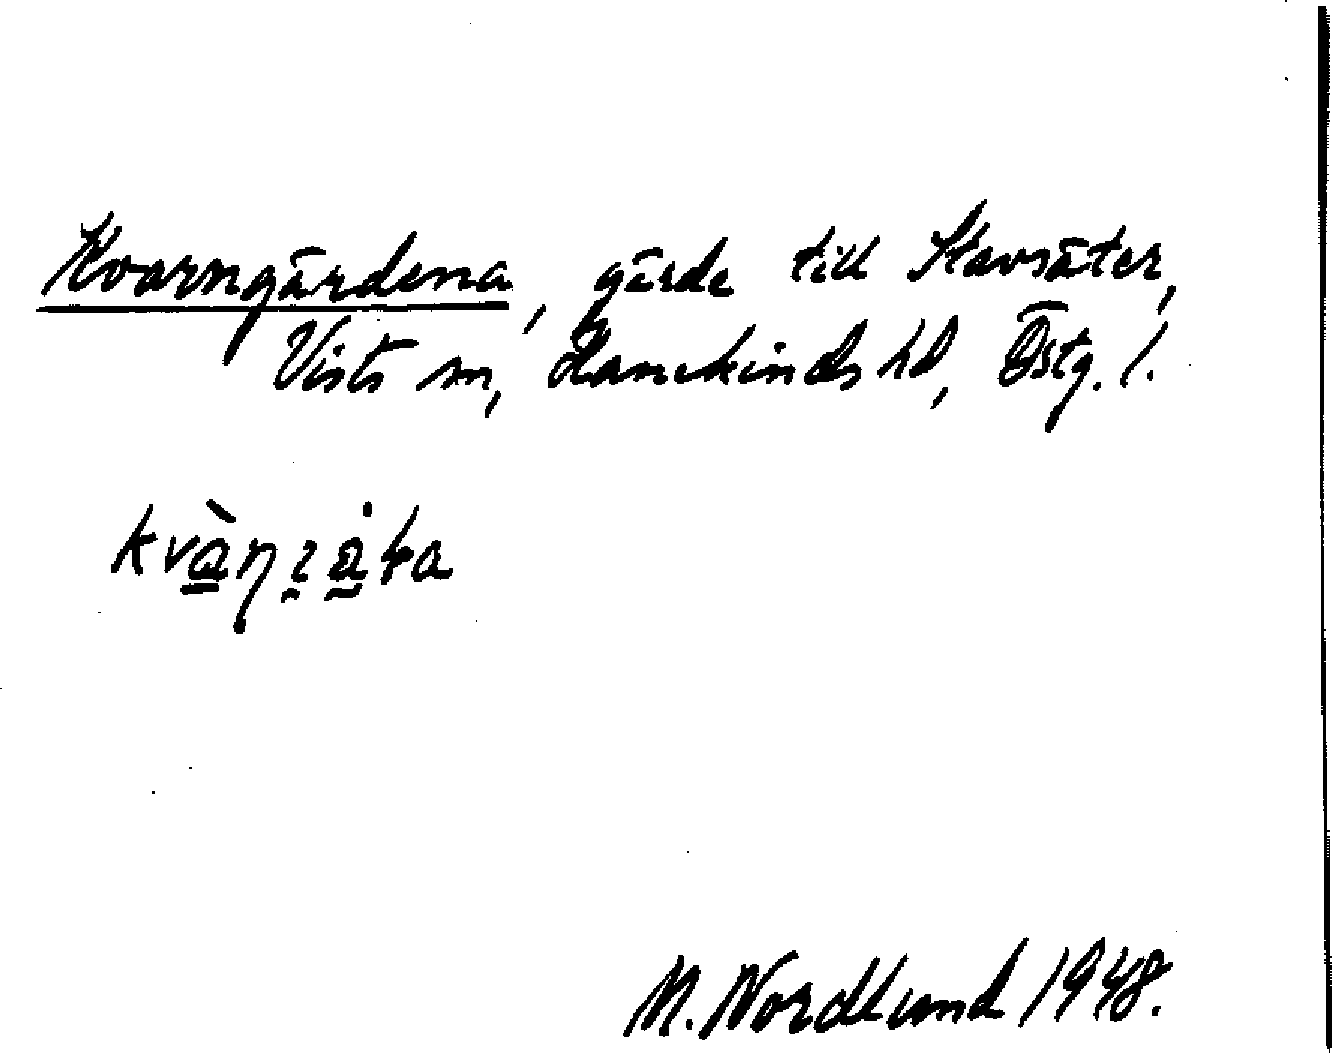 Kvarngärdena, gärde till Stavsäter,
Vists sn, Hanekinds hd, Östg. l.
kvàṇ
M. Nordlund 1948.